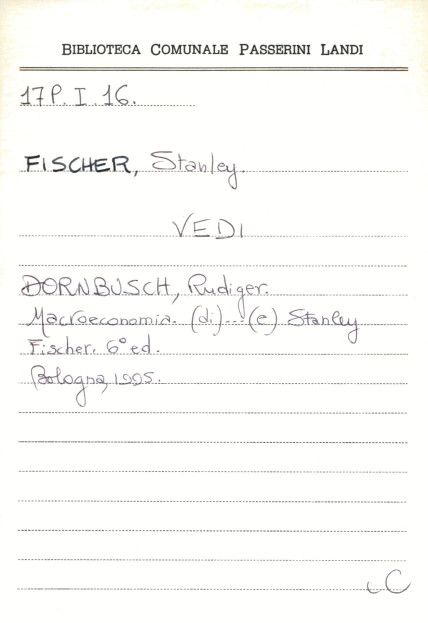 BIBLIOTECA COMUNALE PASSERINI LANDI
17P. I. 16.
FISCHER, Stanley.
VEDI
DORNBUSCH, Rudiger.
Macroeconomia. (di)...(e) Stanley
Fischer. 6° ed.
Bologna, 1995.